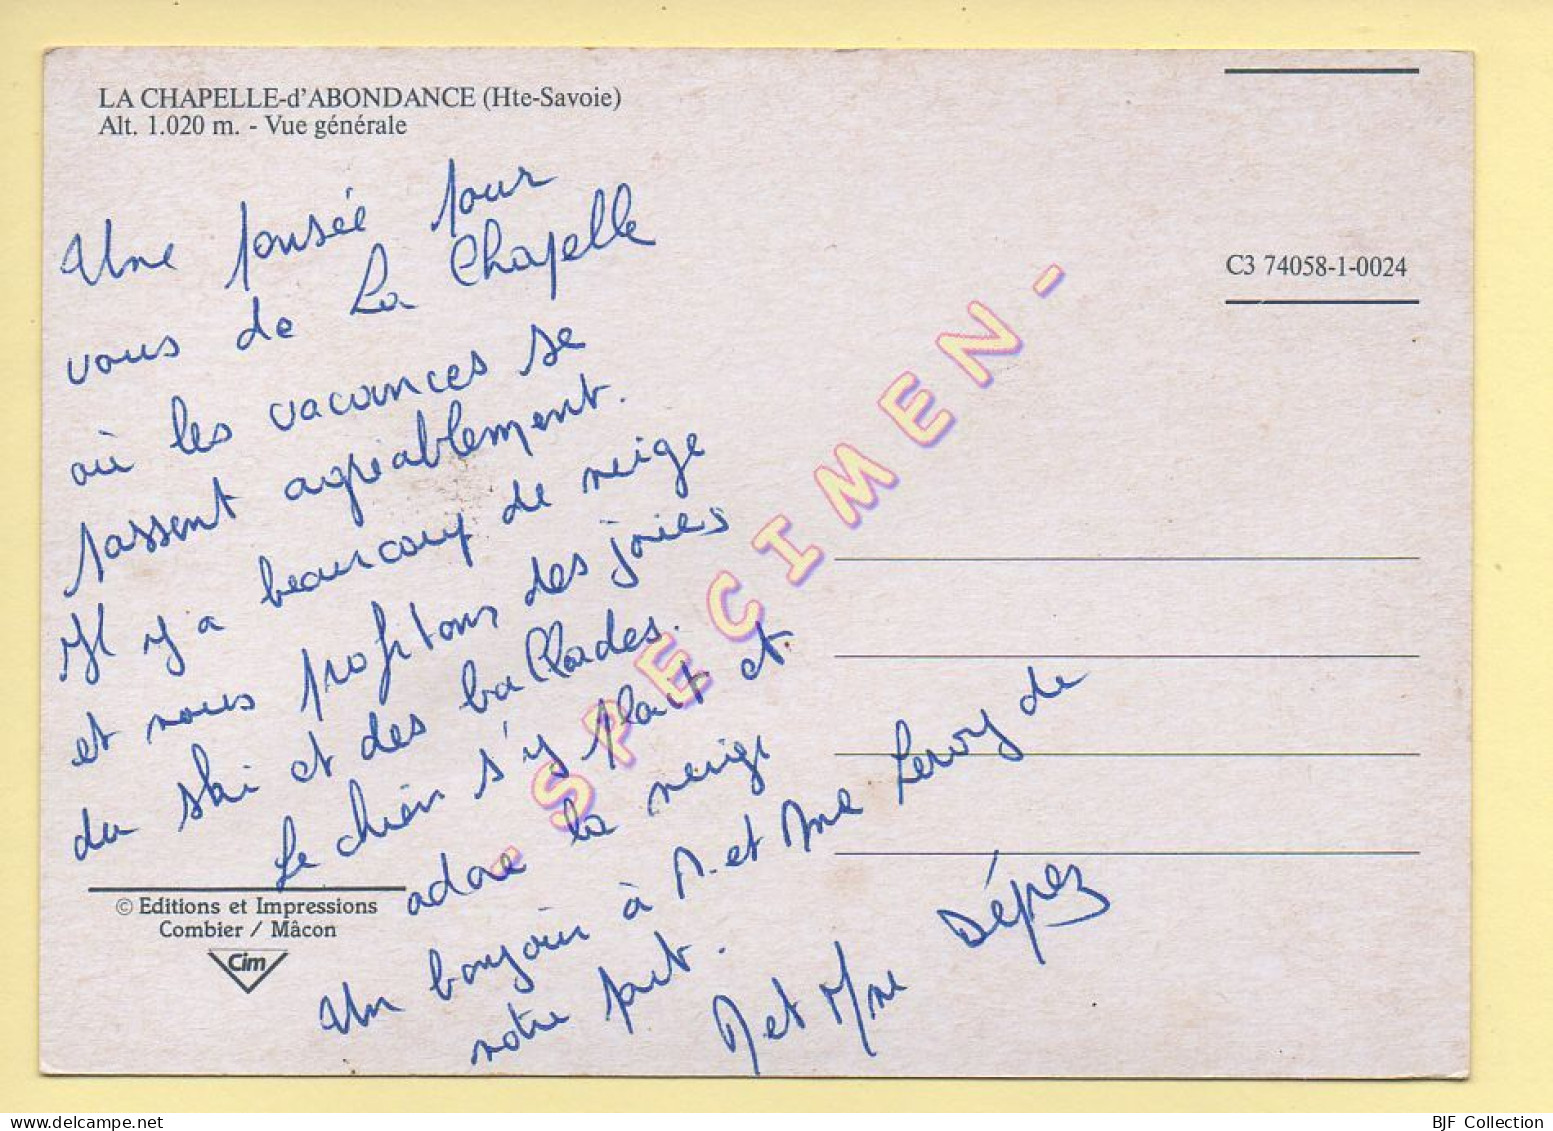 LA CHAPELLE-d'ABONDANCE (Hte-Savoie)
Alt. 1.020 m. - Vue générale
Une pensée pour
vous de La Chapelle
où les vacances se
passent agréablement.
Il y a beaucoup de neige
et nous profitons des joies
du ski et des ballades.
Le chien s'y plait et
adore la neige
Un bonjour à M. et Mme Leroy de
notre part.
M et Mme Dépez
C3 74058-1-0024
- SPECIMEN -
© Editions et Impressions
Combier / Mâcon
Cim
BJF Collection